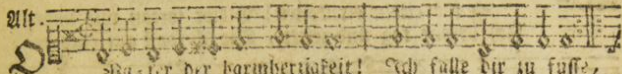 Alt.
O Va-ter der barmhertzigkeit! Ich falle dir zu fusse,